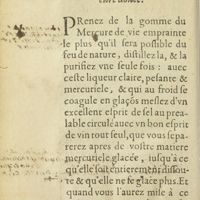 PRenez de la gomme du
Mercure de vie emprainte
le plus qu'il sera possible du
feu de nature, distillez la, & la
purifiez vne seule fois : auec
ceste liqueur claire, pesante &
mercuriele, & qui au froid se
coagule en glaçõs meslez d'vn
excellent esprit de sel au prea-
lable circulé auec vn bon esprit
de vin tout seul, que vous sepa-
rerez apres de vostre matiere
mercuriele glacée, iusqu'à ce
qu'elle soit entierement dissou-
te & qu'elle ne se glace plus. Et
quand vous l'aurez mise à ce